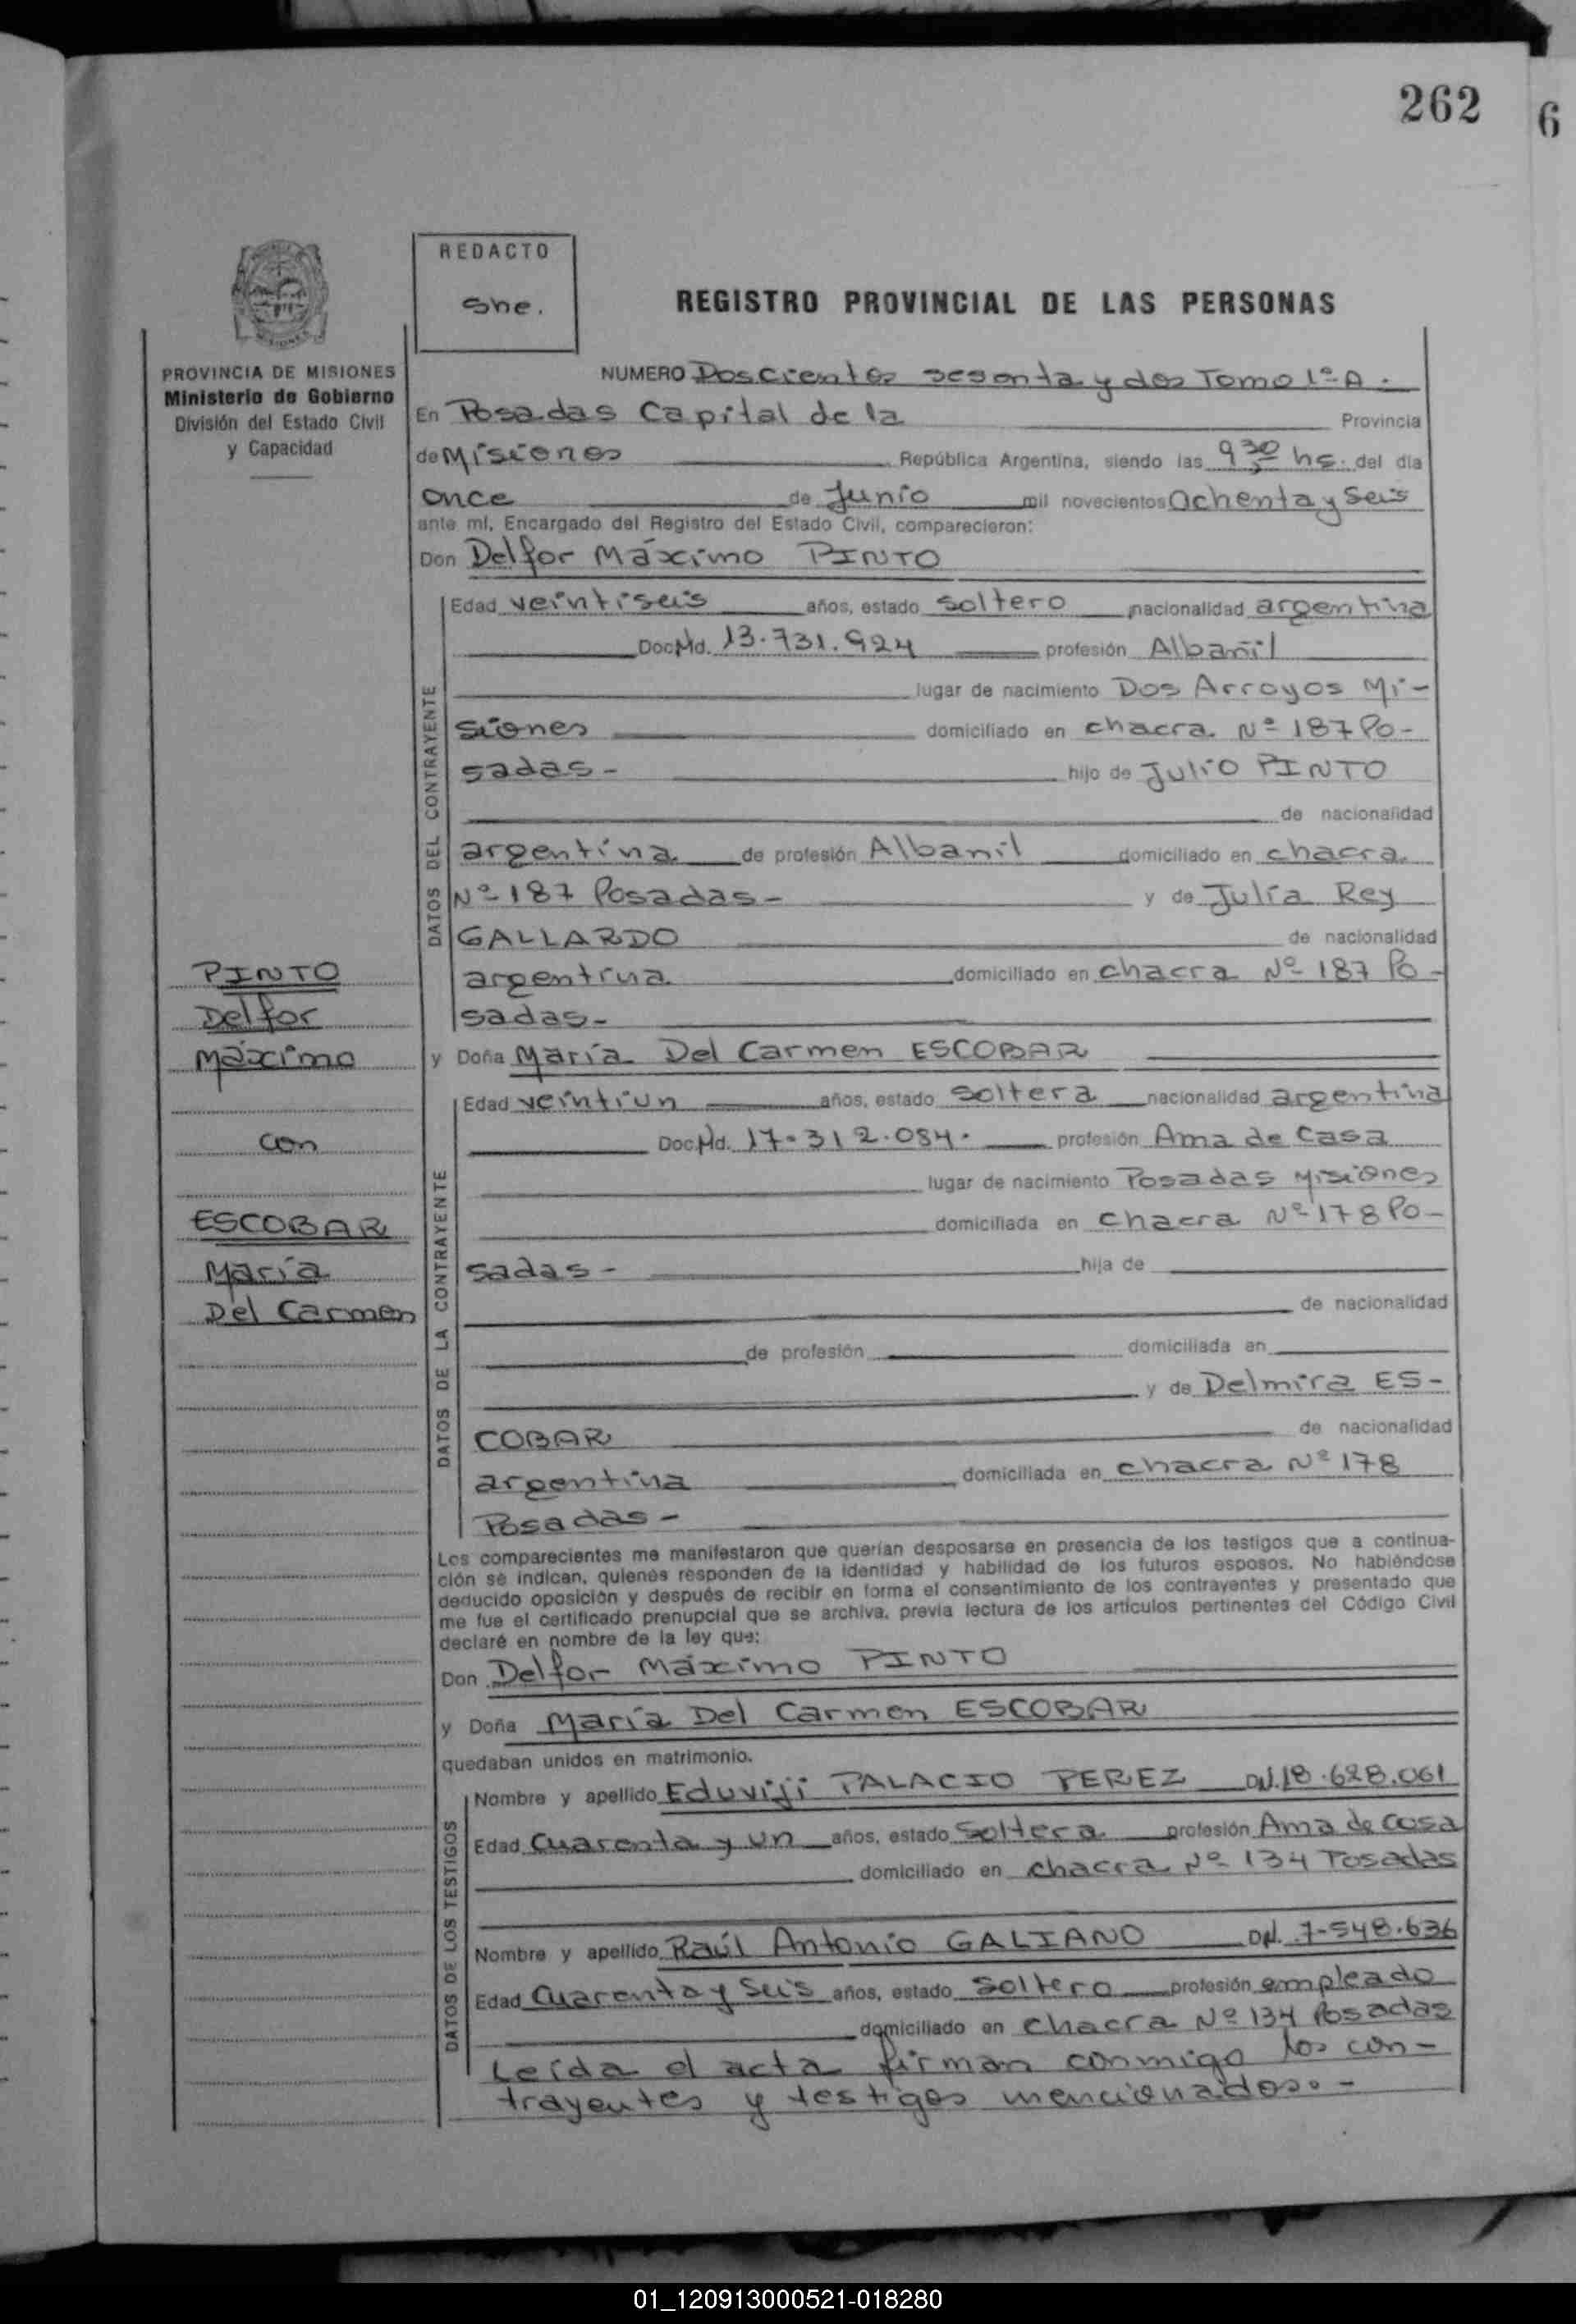 262
6
REDACTO
Sne.
REGISTRO PROVINCIAL DE LAS PERSONAS
PROVINCIA DE MISIONES
Ministerio de Gobierno
División del Estado Civil
y Capacidad
NUMERO Doscientos sesenta y dos Tomo 1º A.
En Posadas Capital de la Provincia
de Misiones República Argentina, siendo las 9,30 hs. del día
once de Junio mil novecientos ochenta y seis
ante mí, Encargado del Registro del Estado Civil, comparecieron:
Don Delfor Máximo PINTO
DATOS DEL CONTRAYENTE
Edad veintiseis años, estado soltero nacionalidad argentina
Doc. Nd. 13.731.924 profesión Albañil
lugar de nacimiento Dos Arroyos Mi-
siones domiciliado en chacra Nº 187 Po-
sadas- hijo de Julio PINTO
de nacionalidad
argentina de profesión Albanil domiciliado en chacra
Nº 187 Posadas- y de Julia Rey
GALLARDO de nacionalidad
argentina domiciliado en chacra Nº 187 Po-
sadas-
PINTO
Delfor
Máximo
con
ESCOBAR
María
Del Carmen
y Doña María Del Carmen ESCOBAR
DATOS DE LA CONTRAYENTE
Edad veintiun años, estado soltera nacionalidad argentina
Doc. Nd. 17.312.084. profesión Ama de casa
lugar de nacimiento Posadas Misiones
domiciliada en chacra Nº 178 Po-
sadas- hija de
de nacionalidad
de profesión domiciliada en
y de Delmira ES-
COBAR de nacionalidad
argentina domiciliada en chacra Nº 178
Posadas-
Los comparecientes me manifestaron que querían desposarse en presencia de los testigos que a continua-
ción se indican, quienes responden de la identidad y habilidad de los futuros esposos. No habiéndose
deducido oposición y después de recibir en forma el consentimiento de los contrayentes y presentado que
me fue el certificado prenupcial que se archiva, previa lectura de los artículos pertinentes del Código Civil
declaré en nombre de la ley que:
Don Delfor Máximo PINTO
y Doña María Del Carmen ESCOBAR
quedaban unidos en matrimonio.
DATOS DE LOS TESTIGOS
Nombre y apellido Eduviji PALACIO PEREZ DN. 18.628.061
Edad cuarenta y un años, estado soltera profesión Ama de casa
domiciliado en chacra Nº 134 Posadas
Nombre y apellido Raúl Antonio GALIANO DN. 7-548.636
Edad cuarenta y seis años, estado soltero profesión empleado
domiciliado en chacra Nº 134 Posadas
Leída el acta firman conmigo los con-
trayentes y testigos mencionados.-
01_120913000521-018280